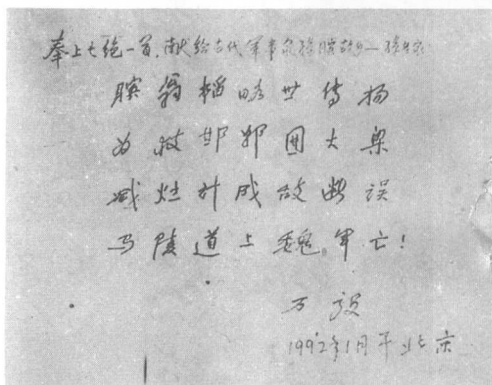 奉上七绝一首,献给古代军事家孙膑故乡—孙老家
膑翁韬略世传扬
为救邯郸围大梁
减灶计成敌断误
马陵道上魏军亡!
万毅
1992年1月于北京